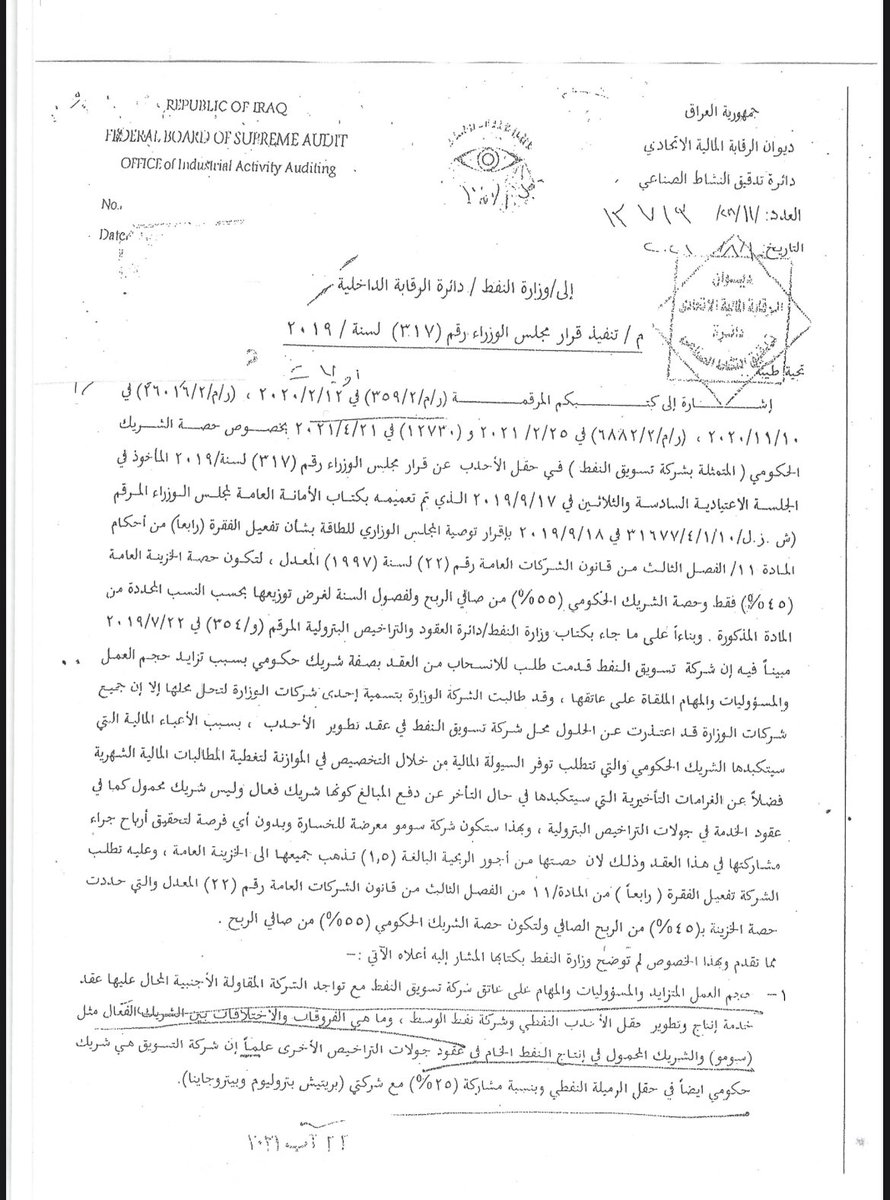 REPUBLIC OF IRAQ
FEDERAL BOARD OF SUPREME AUDIT
OFFICE of Industrial Activity Auditing
No.
Date
جمهورية العراق
ديوان الرقابة المالية الاتحادي
دائرة تدقيق النشاط الصناعي
العدد: ١٣٧١٣
التاريخ: ٢٠٢١
ديوان
الرقابة المالية الاتحادي
دائرة
تدقيق النشاط الصناعي
إلى/وزارة النفط / دائرة الرقابة الداخلية
م/ تنفيذ قرار مجلس الوزراء رقم (٣١٧) لسنة / ٢٠١٩
أوليات
تحية طيبة
إشارة إلى كتبكم المرقمة (ر/م/٣٥٩/٢) في ٢٠٢٠/٢/١٢ ، (ر/م/٤٦٠١٦/٢) في
٢٠٢٠/١١/١٠ ، (ر/م/٦٨٨٢/٢) في ٢٠٢١/٢/٢٥ و (١٢٧٣٠) في ٢٠٢١/٤/٢١ بخصوص حصة الشريك
الحكومي (المتمثلة بشركة تسويق النفط ) في حقل الأحدب عن قرار مجلس الوزراء رقم (٣١٧) لسنة/٢٠١٩ المأخوذ في
الجلسة الاعتيادية السادسة والثلاثين في ٢٠١٩/٩/١٧ الذي تم تعميمه بكتاب الأمانة العامة لمجلس الوزراء المرقم
(ش .ز.ل/٣١٦٧٧/٤/١/١٠ في ٢٠١٩/٩/١٨ بإقرار توصية المجلس الوزاري للطاقة بشأن تفعيل الفقرة (رابعاً) من أحكام
المادة ١١/ الفصل الثالث من قانون الشركات العامة رقم (٢٢) لسنة (١٩٩٧) المعدل ، لتكون حصة الخزينة العامة
(٤٥%) فقط وحصة الشريك الحكومي (٥٥%) من صافي الربح ولفصول السنة لغرض توزيعها بحسب النسب المحددة من
المادة المذكورة . وبناءاً على ما جاء بكتاب وزارة النفط/دائرة العقود والتراخيص البترولية المرقم (و/٣٥٤) في ٢٠١٩/٧/٢٢
مبيناً فيه إن شركة تسويق النفط قدمت طلب للانسحاب من العقد بصفة شريك حكومي بسبب تزايد حجم العمل
والمسؤوليات والمهام الملقاة على عاتقها ، وقد طالبت الشركة الوزارة بتسمية إحدى شركات الوزارة لتحل محلها إلا إن جميع
شركات الوزارة قد اعتذرت عن الحلول محل شركة تسويق النفط في عقد تطوير الأحدب ، بسبب الأعباء المالية التي
سيتكبدها الشريك الحكومي والتي تتطلب توفر السيولة المالية من خلال التخصيص في الموازنة لتغطية المطالبات المالية الشهرية
فضلاً عن الغرامات التأخيرية التي سيتكبدها في حال التأخر عن دفع المبالغ كونها شريك فعال وليس شريك محمول كما في
عقود الخدمة في جولات التراخيص البترولية ، وبهذا ستكون شركة سومو معرضة للخسارة وبدون أي فرصة لتحقيق أرباح جراء
مشاركتها في هذا العقد وذلك لان حصتها من أجور الربحية البالغة (١,٥) تذهب جميعها الى الخزينة العامة ، وعليه تطلب
الشركة تفعيل الفقرة ( رابعاً ) من المادة/١١ من الفصل الثالث من قانون الشركات العامة رقم (٢٢) المعدل والتي حددت
حصة الخزينة بـ(٤٥%) من الربح الصافي ولتكون حصة الشريك الحكومي (٥٥%) من صافي الربح .
مما تقدم وبهذا الخصوص لم توضح وزارة النفط بكتابها المشار إليه أعلاه الآتي :–
١– حجم العمل المتزايد والمسؤوليات والمهام على عاتق شركة تسويق النفط مع تواجد الشركة المقاولة الأجنبية المحال عليها عقد
خدمة إنتاج وتطوير حقل الأحدب النفطي وشركة نفط الوسط ، وما هي الفروقات والأختلافات بين الشريك الفعّال مثل
(سومو) والشريك المحمول في إنتاج النفط الخام في عقود جولات التراخيص الأخرى علماً إن شركة التسويق هي شريك
حكومي ايضاً في حقل الرميلة النفطي وبنسبة مشاركة (٢٥%) مع شركتي (بريتيش بتروليوم وبيتروجاينا).
٢٢ آب ٢٠٢١